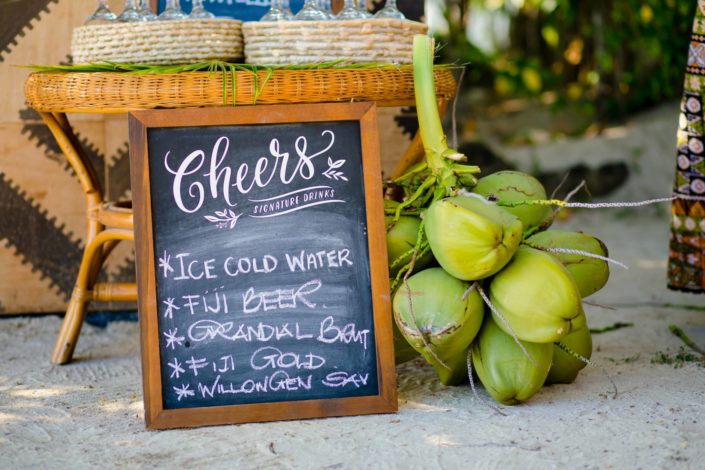 Cheers
SIGNATURE DRINKS
* ICE COLD WATER
* FIJI BEER
* GRANDIAL BRUT
* FIJI GOLD
* WILLONGEN SAV